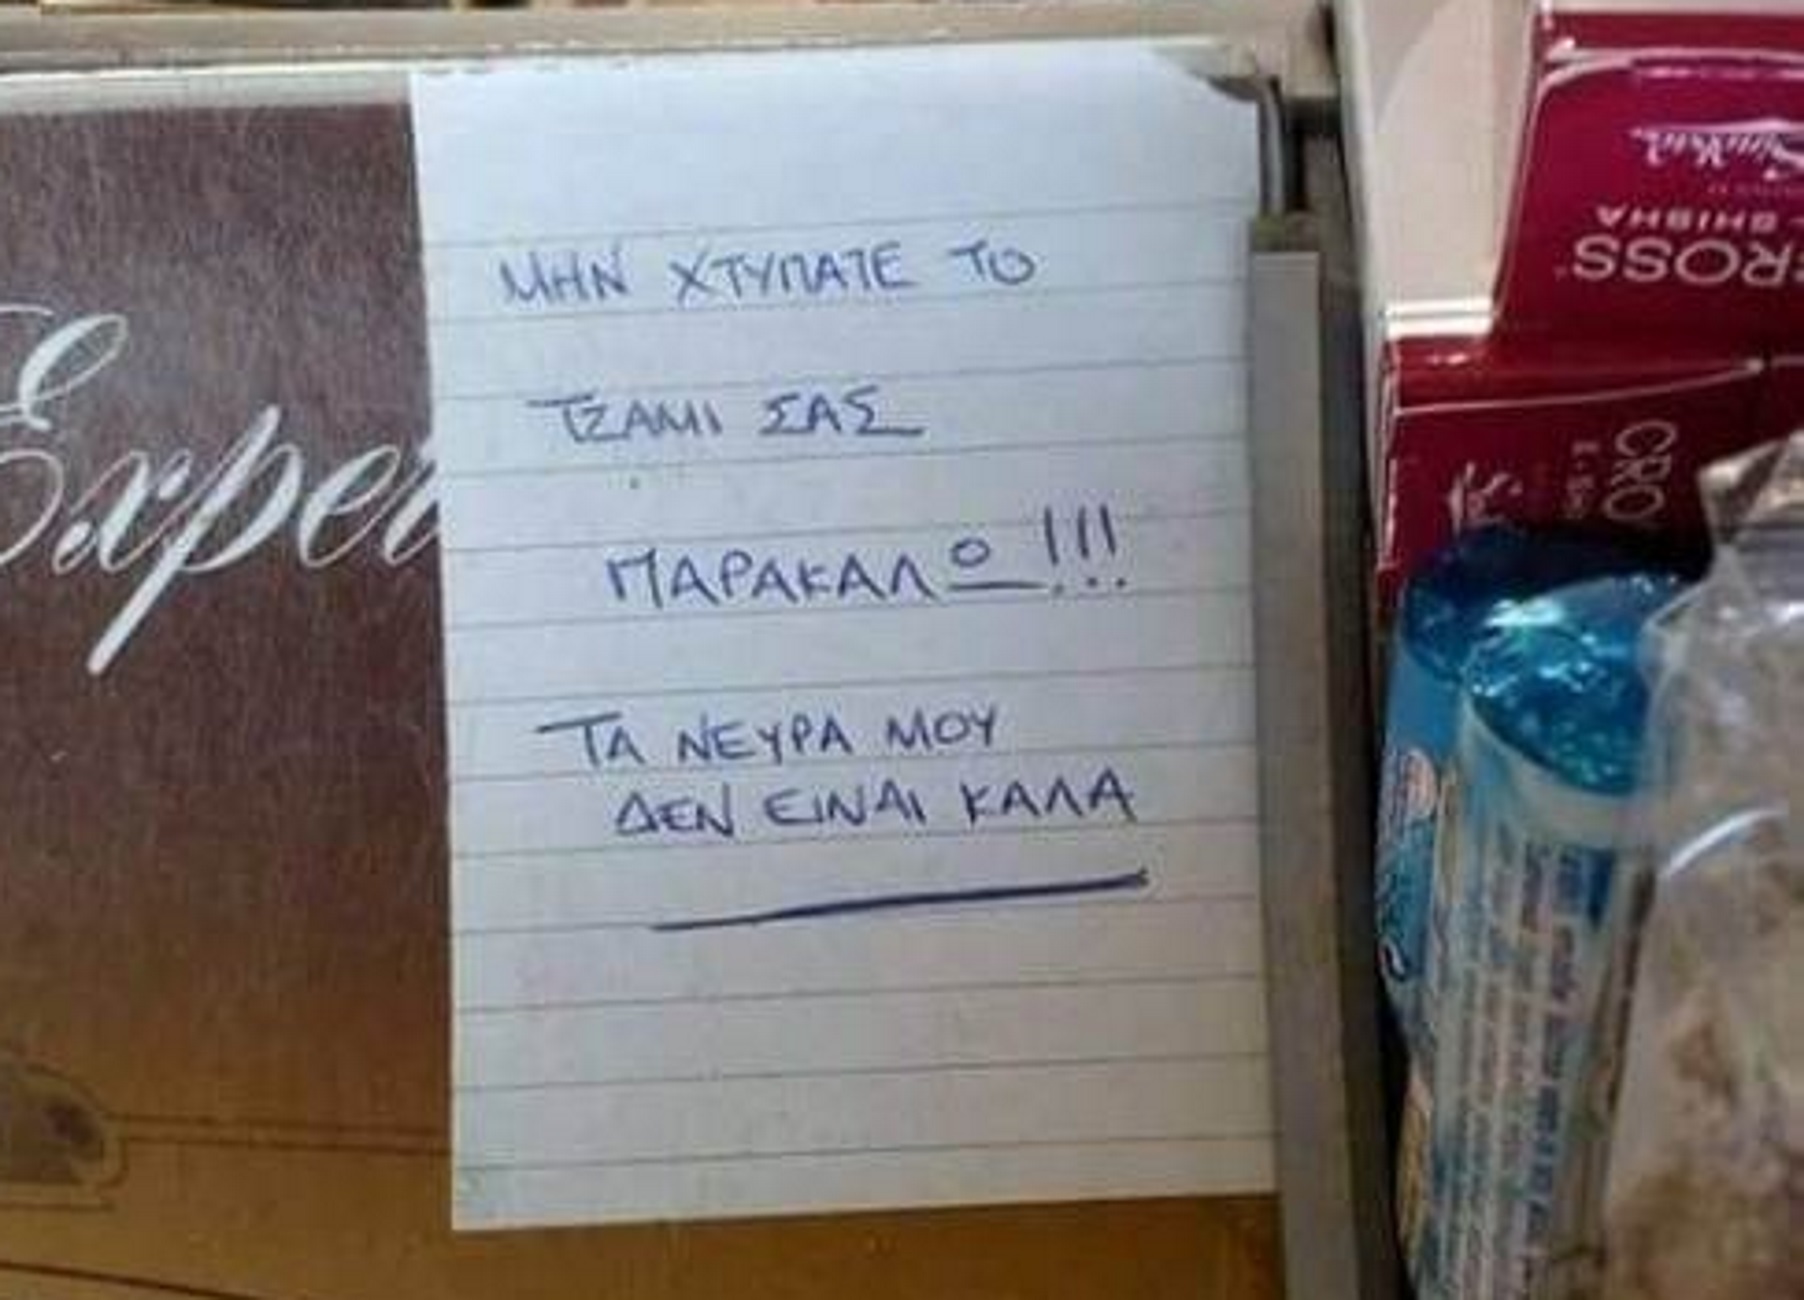 ΜΗΝ ΧΤΥΠΑΤΕ ΤΟ
ΤΖΑΜΙ ΣΑΣ
ΠΑΡΑΚΑΛΩ!!!
ΤΑ ΝΕΥΡΑ ΜΟΥ
ΔΕΝ ΕΙΝΑΙ ΚΑΛΑ
Exper
SHISHA
CROSS
CRO